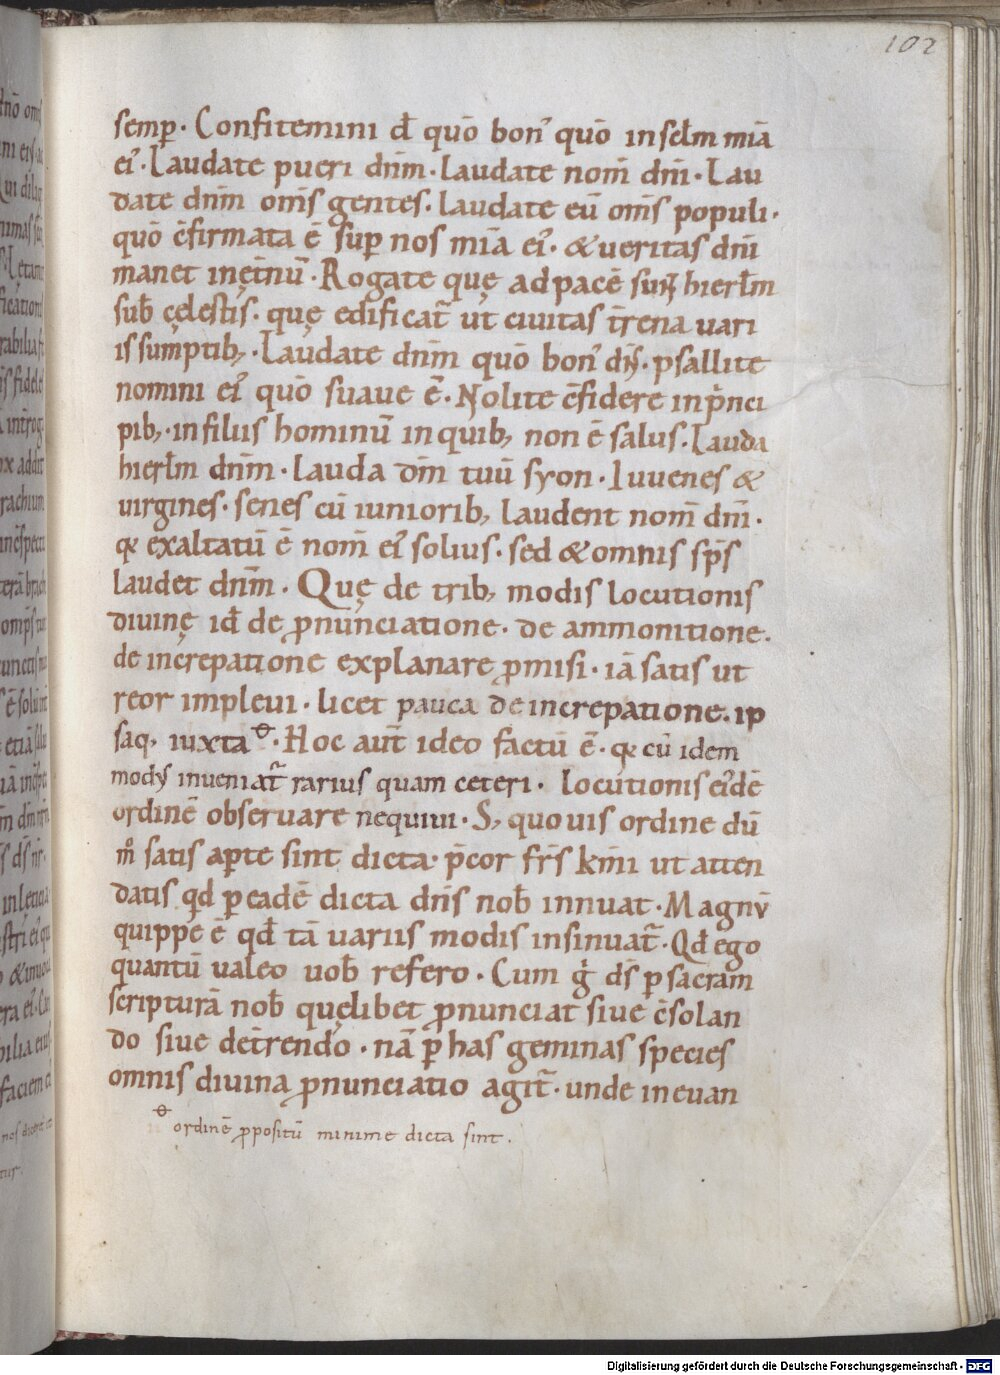 102
semp̱. Confitemini d̄ quō bon᾽ quō in sclm miā
ei᾽. Laudate pueri dnm̄. laudate nom̄ dn̄i. Lau
date dnm̄ om̄s gentes. laudate eū om̄s populi.
quō c̄firmata ē sup̱ nos miā ei᾽. & ueritas dn̄i
manet in ęt̄nū. Rogate quę ad pacē sunt hierłm
sub̄ cęlestis. quę edificat̄ ut ciuitas t̄rena uari
is sumptib;. Laudate dnm̄ quō bon᾽ dn̄s. psallite
nomini ei᾽ quō suaue ē. Nolite c̄fidere in p̄nci
pib;. in filiis hominū in quib; non ē salus. Lauda
hierłm dnm̄. lauda dm̄ tuū syon. Iuuenes &
uirgines. senes cū iuniorib; laudent nom̄ dn̄i.
q̱ exaltatū ē nom̄ ei᾽ solius. sed & omnis sp̄s
laudet dnm̄. Quę de trib; modis locutionis
diuinę id̄ de p̱nunciatione. de ammonitione.
de increpatione explanare p̱misi. iā satis ut
reor impleui. licet pauca de increpatione. ip
saq; iuxta. Hoc aut̄ ideo factū ē. q̱ cū idem
modus inueniat̄ rarius quam ceteri. locutionis ei᾽dē
ordinē obseruare nequiui. S; quouis ordine dū
m̊ satis ap̱te sint dicta. p̄cor fr̄s km̄i ut atten
datis qd̄ p̱ eadē dicta dn̄s nob̄ innuat. Magnū
quippe ē qd̄ tā uariis modis insinuat̄. Qd̄ ego
quantū ualeo uob̄ refero. Cum g̊ ds̄ p̱ sacram
scripturā nob̄ quęlibet p̱nunciat siue c̄solan
do siue det̄rendo. nā p̱ has geminas species
omnis diuina p̱nunciatio agit̄. unde in euan
ordinē p̱positū minime dicta sint.
Digitalisierung gefördert durch die Deutsche Forschungsgemeinschaft - DFG